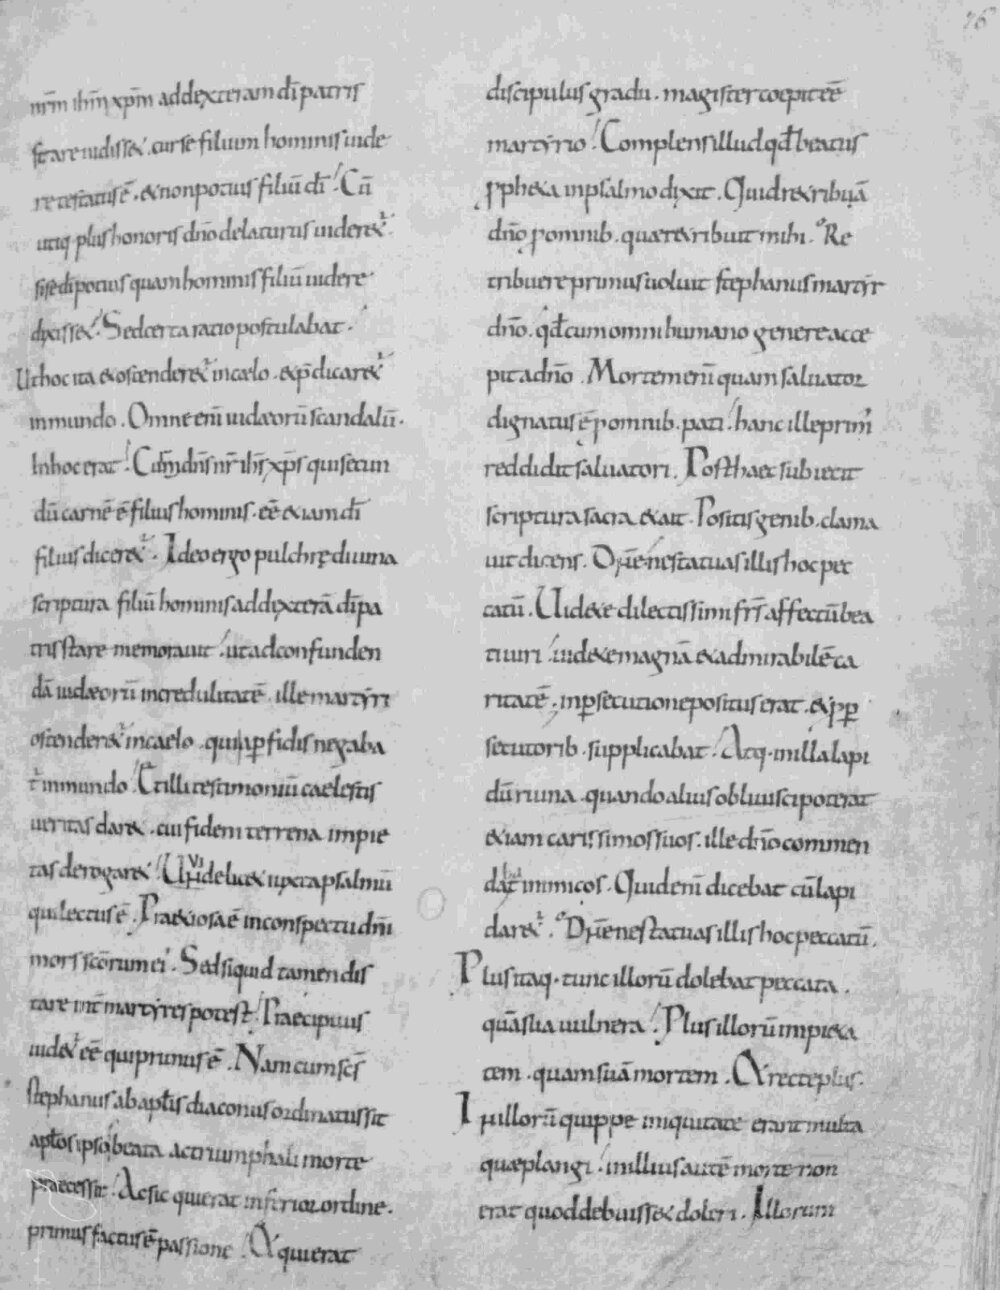 76
nr̄m ihm̄ xpm̄ ad dexteram dī patris
stare uidisset. cur se filium hominis uide
re testatus ē. & non potius filiū dī. Cū
utiq; plus honoris dn̄o delaturus uideret̄.
si se dī potius quam hominis filiū uidere
dixisset. Sed certa ratio postulabat.
Ut hoc ita & ostenderet̄ in caelo. & p̄dicaret̄
in mundo. Omne enī iudaeorū scandalū.
In hoc erat. Cur dn̄s nr̄ ihs̄ xps̄ qui secun
dū carnē ē filius hominis. eē & iam dī
filius diceret̄. Ideo ergo pulchrę diuina
scriptura filiū hominis ad dexterā dī pa
tris stare memorauit. ut ad confunden
dā iudaeorū incredulitatē. ille martyri
ostenderet̄ in caelo. qui a perfidis negaba
t̄ in mundo. Et illi testimoniū caelestis
ueritas daret. cui fidem terrena impie
tas derogaret. Ur̄ uidelicet iuxta psalmū
qui lectus ē. Praetiosa ē in conspectu dn̄i
mors scōrum ei'. Sed siquid tamen dis
tare int̄ martyres potest. Praecipuus
uidet̄ eē qui primus ē. Nam cum scs̄
stephanus ab aptis̄ diaconus ordinatus sit
aptos̄ ipsos beata ac triumphali morte
praecessit. Ac sic qui erat inferior ordine.
primus factus ē passione. Et qui erat
discipulus gradu. magister coepit eē
martyrio. Complens illud qd̄ beatus
ppheta in psalmo dixit. Quid retribuā
dn̄o p omnib. quae retribuit mihi. Re
tribuere primus uoluit stephanus martyr
dn̄o. qd̄ cum omni humano genere acce
pit a dn̄o. Mortem enī quam saluator
dignatus ē p omnib. pati. hanc ille prim'
reddidit saluatori. Post haec subiecit
scriptura sacra & ait. Positis genib. clama
uit dicens. Dn̄e ne statuas illis hoc pec
catū. Uidete dilectissimi frs̄ affectū bea
ti uiri. uidete magnā & admirabilē ca
ritatē. in psecutione positus erat. & p p
secutorib. supplicabat. Atq; in illa lapi
dū ruina. quando alius obliuisci poterat
etiam carissimos suos. ille dn̄o commen
dabat inimicos. Quid enī dicebat cū lapi
daret̄. Dn̄e ne statuas illis hoc peccatū.
Plus itaq; tunc illorū dolebat peccata.
quā sua uulnera. Plus illorū impieta
tem. quam suā mortem. Et recte plus.
In illorū quippe iniquitate erant multa
quae plangi. in illius autē morte non
erat quod debuisset doleri. Illorum